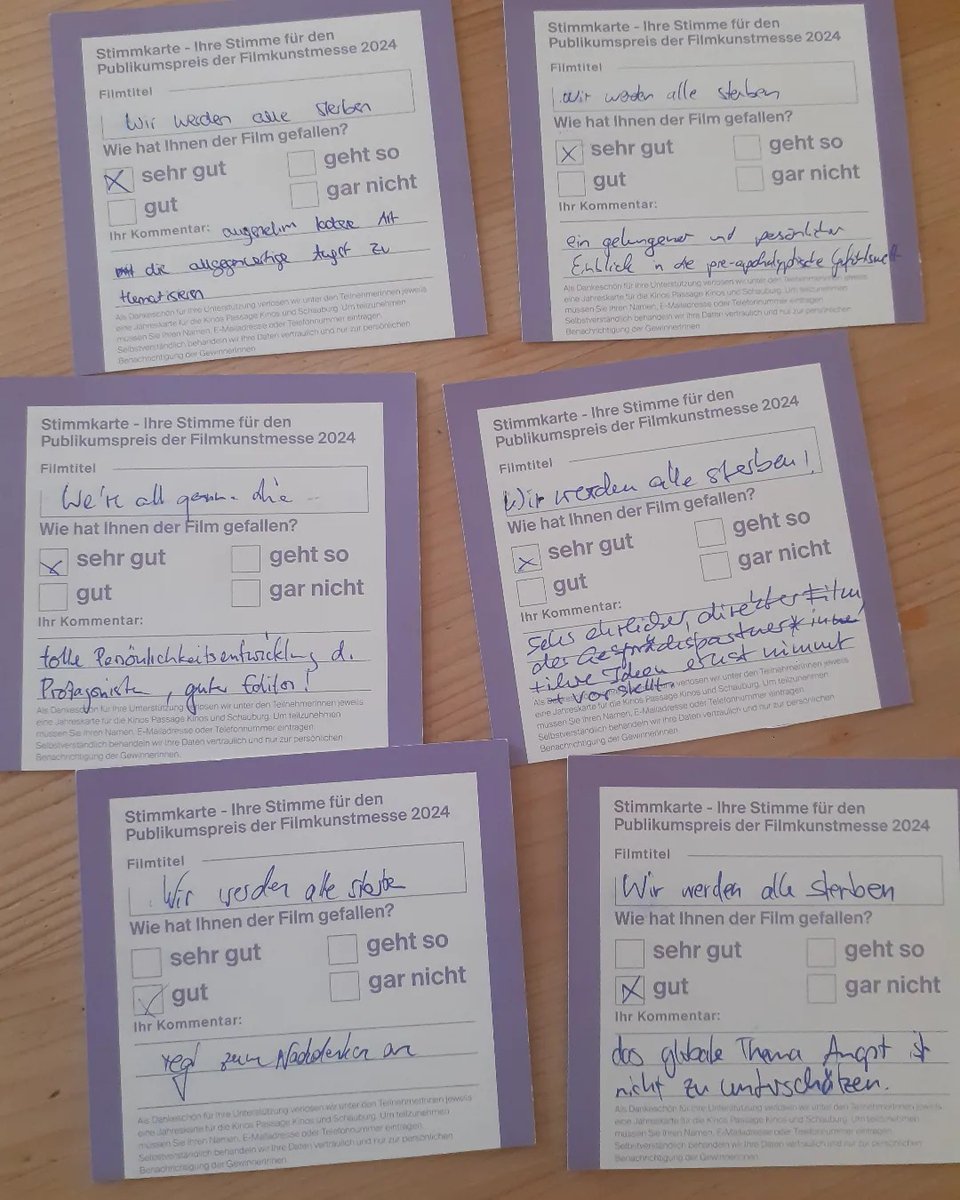 Stimmkarte - Ihre Stimme für den
Publikumspreis der Filmkunstmesse 2024
Filmtitel
Wir werden alle sterben
Wie hat Ihnen der Film gefallen?
sehr gut
geht so
gut
gar nicht
Ihr Kommentar: angenehm lockere Art
die allgegenwärtige Angst zu
thematisieren
Als Dankeschön für Ihre Unterstützung verlosen wir unter den TeilnehmerInnen jeweils
eine Jahreskarte für die Kinos Passage Kinos und Schauburg. Um teilzunehmen
müssen Sie Ihren Namen, E-Mailadresse oder Telefonnummer eintragen.
Selbstverständlich behandeln wir Ihre Daten vertraulich und nur zur persönlichen
Benachrichtigung der GewinnerInnen.
Stimmkarte - Ihre Stimme für den
Publikumspreis der Filmkunstmesse 2024
Filmtitel
Wir werden alle sterben
Wie hat Ihnen der Film gefallen?
sehr gut
geht so
gut
gar nicht
Ihr Kommentar:
ein gelungener und persönlicher
Einblick in die pre-apokalyptische Gefühlswelt
Als Dankeschön für Ihre Unterstützung verlosen wir unter den TeilnehmerInnen jeweils
eine Jahreskarte für die Kinos Passage Kinos und Schauburg. Um teilzunehmen
müssen Sie Ihren Namen, E-Mailadresse oder Telefonnummer eintragen.
Selbstverständlich behandeln wir Ihre Daten vertraulich und nur zur persönlichen
Benachrichtigung der GewinnerInnen.
Stimmkarte - Ihre Stimme für den
Publikumspreis der Filmkunstmesse 2024
Filmtitel
We're all die ...
Wie hat Ihnen der Film gefallen?
sehr gut
geht so
gut
gar nicht
Ihr Kommentar:
tolle Persönlichkeitsentwicklung d.
Protagonistin, guter Editor!
Als Dankeschön für Ihre Unterstützung verlosen wir unter den TeilnehmerInnen jeweils
eine Jahreskarte für die Kinos Passage Kinos und Schauburg. Um teilzunehmen
müssen Sie Ihren Namen, E-Mailadresse oder Telefonnummer eintragen.
Selbstverständlich behandeln wir Ihre Daten vertraulich und nur zur persönlichen
Benachrichtigung der GewinnerInnen.
Stimmkarte - Ihre Stimme für den
Publikumspreis der Filmkunstmesse 2024
Filmtitel
Wir werden alle sterben!
Wie hat Ihnen der Film gefallen?
sehr gut
geht so
gut
gar nicht
Ihr Kommentar:
Sehr ehrlicher, direkter Film
der Gesprächspartner*innen
Ideen ernst nimmt
+ vorstellt.
Als Dankeschön für Ihre Unterstützung verlosen wir unter den TeilnehmerInnen jeweils
eine Jahreskarte für die Kinos Passage Kinos und Schauburg. Um teilzunehmen
müssen Sie Ihren Namen, E-Mailadresse oder Telefonnummer eintragen.
Selbstverständlich behandeln wir Ihre Daten vertraulich und nur zur persönlichen
Benachrichtigung der GewinnerInnen.
Stimmkarte - Ihre Stimme für den
Publikumspreis der Filmkunstmesse 2024
Filmtitel
Wir werden alle sterben
Wie hat Ihnen der Film gefallen?
sehr gut
geht so
gut
gar nicht
Ihr Kommentar:
regt zum Nachdenken an
Als Dankeschön für Ihre Unterstützung verlosen wir unter den TeilnehmerInnen jeweils
eine Jahreskarte für die Kinos Passage Kinos und Schauburg. Um teilzunehmen
müssen Sie Ihren Namen, E-Mailadresse oder Telefonnummer eintragen.
Selbstverständlich behandeln wir Ihre Daten vertraulich und nur zur persönlichen
Benachrichtigung der GewinnerInnen.
Stimmkarte - Ihre Stimme für den
Publikumspreis der Filmkunstmesse 2024
Filmtitel
Wir werden alle sterben
Wie hat Ihnen der Film gefallen?
sehr gut
geht so
gut
gar nicht
Ihr Kommentar:
das globale Thema Angst ist
nicht zu unterschätzen.
Als Dankeschön für Ihre Unterstützung verlosen wir unter den TeilnehmerInnen jeweils
eine Jahreskarte für die Kinos Passage Kinos und Schauburg. Um teilzunehmen
müssen Sie Ihren Namen, E-Mailadresse oder Telefonnummer eintragen.
Selbstverständlich behandeln wir Ihre Daten vertraulich und nur zur persönlichen
Benachrichtigung der GewinnerInnen.